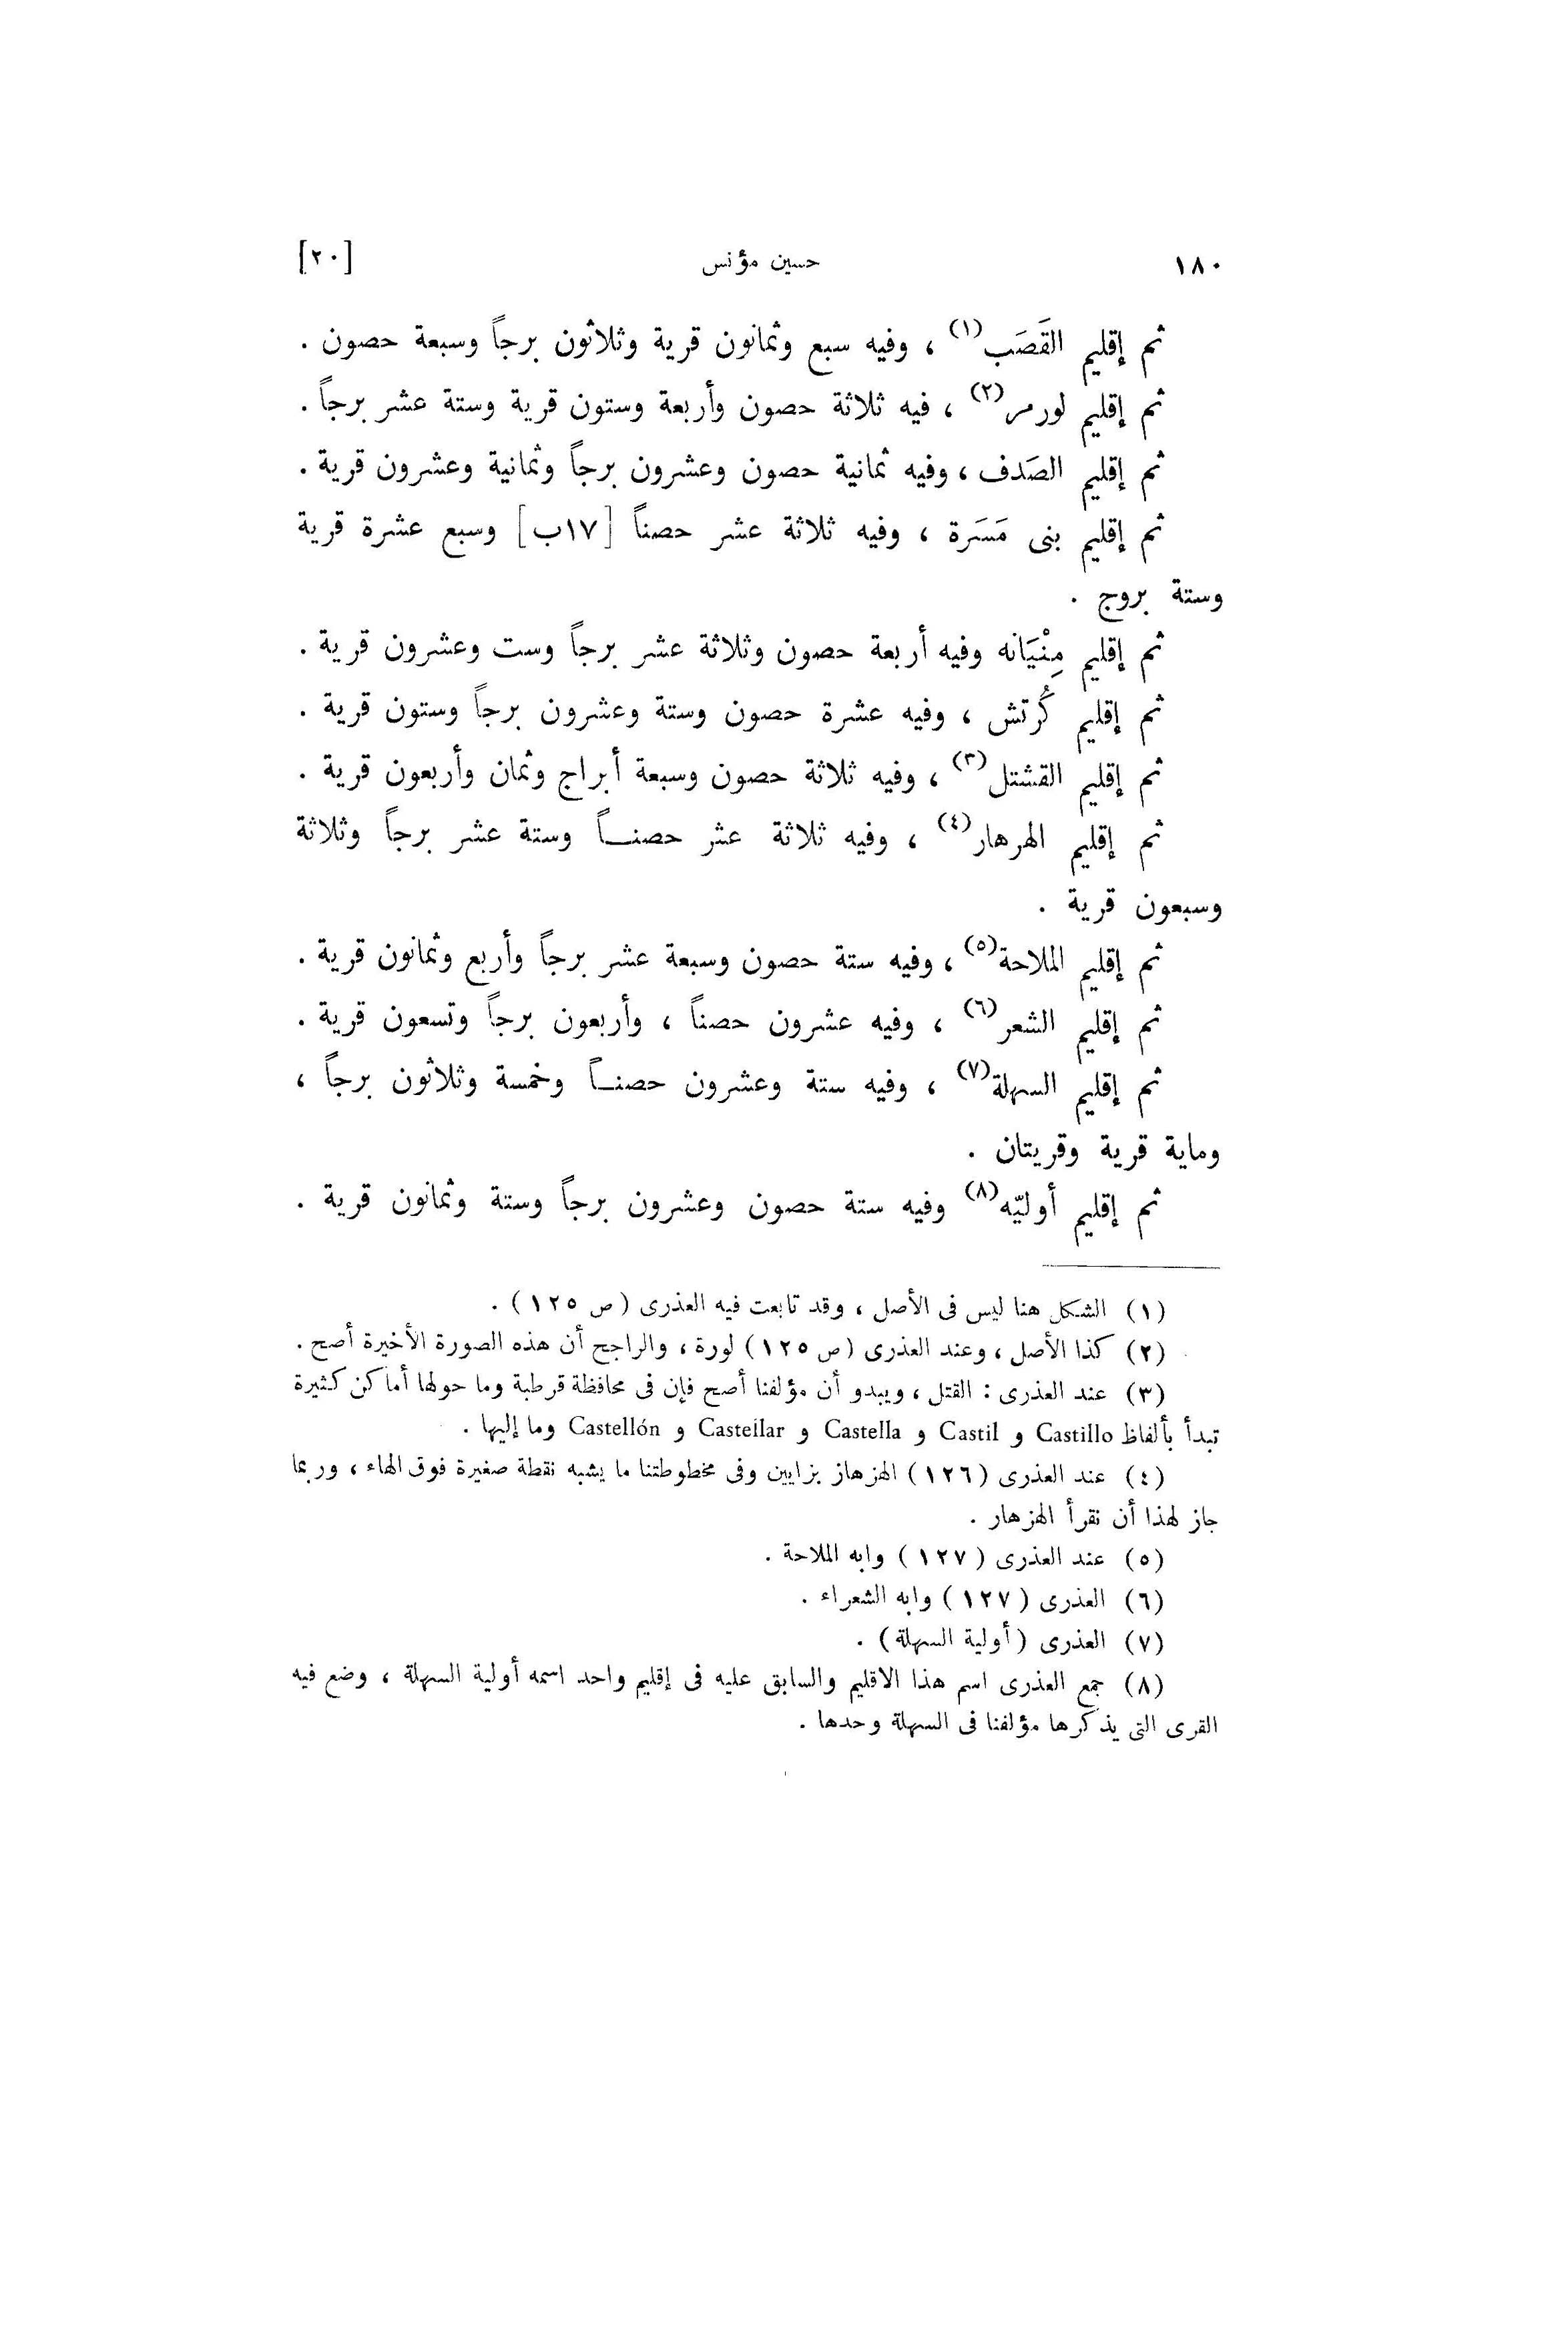 ١٨٠ حسين مؤنس [٢٠]
ثم إقليم القَصَب(١) ، وفيه سبع وثمانون قرية وثلاثون برجاً وسبعة حصون .
ثم إقليم لورمر(٢) ، فيه ثلاثة حصون وأربعة وستون قرية وستة عشر برجاً .
ثم إقليم الصَدف ، وفيه ثمانية حصون وعشرون برجاً وثمانية وعشرون قرية .
ثم إقليم بنى مَسَرة ، وفيه ثلاثة عشر حصناً [١٧ب] وسبع عشرة قرية
وستة بروج .
ثم إقليم مِنْيَانه وفيه أربعة حصون وثلاثة عشر برجاً وست وعشرون قرية .
ثم إقليم كُرتش ، وفيه عشرة حصون وستة وعشرون برجاً وستون قرية .
ثم إقليم القشتل(٣) ، وفيه ثلاثة حصون وسبعة أبراج وثمان وأربعون قرية .
ثم إقليم الهرهار(٤) ، وفيه ثلاثة عثر حصنـــاً وستة عشر برجاً وثلاثة
وسبعون قرية .
ثم إقليم الملاحة(٥) ، وفيه ستة حصون وسبعة عشر برجاً وأربع وثمانون قرية .
ثم إقليم الشعر(٦) ، وفيه عشرون حصناً ، وأربعون برجاً وتسعون قرية .
ثم إقليم السهلة(٧) ، وفيه ستة وعشرون حصنــاً وخمسة وثلاثون برجاً ،
وماية قرية وقريتان .
ثم إقليم أوليّه(٨) وفيه ستة حصون وعشرون برجاً وستة وثمانون قرية .
(١) الشكل هنا ليس فى الأصل ، وقد تابعت فيه العذرى ( ص ١٢٥ ) .
(٢) كذا الأصل ، وعند العذرى ( ص ١٢٥ ) لورة ، والراجح أن هذه الصورة الأخيرة أصح .
(٣) عند العذرى : القتل ، ويبدو أن مؤلفنا أصح فإن فى محافظة قرطبة وما حولها أماكن كثيرة
تبدأ بألفاظ Castillo و Castil و Castella و Castellar و Castellón وما إليها .
(٤) عند العذرى ( ١٢٦ ) الهزهاز بزايين وفى مخطوطتنا ما يشبه نقطة صغيرة فوق الهاء ، وربما
جاز لهذا أن نقرأ الهزهار .
(٥) عند العذرى ( ١٢٧ ) وابه الملاحة .
(٦) العذرى ( ١٢٧ ) وابه الشعراء .
(٧) العذرى ( أولية السهلة ) .
(٨) جمع العذرى اسم هذا الاقليم والسابق عليه فى إقليم واحد اسمه أولية السهلة ، وضع فيه
القرى التى يذكرها مؤلفنا فى السهلة وحدها .